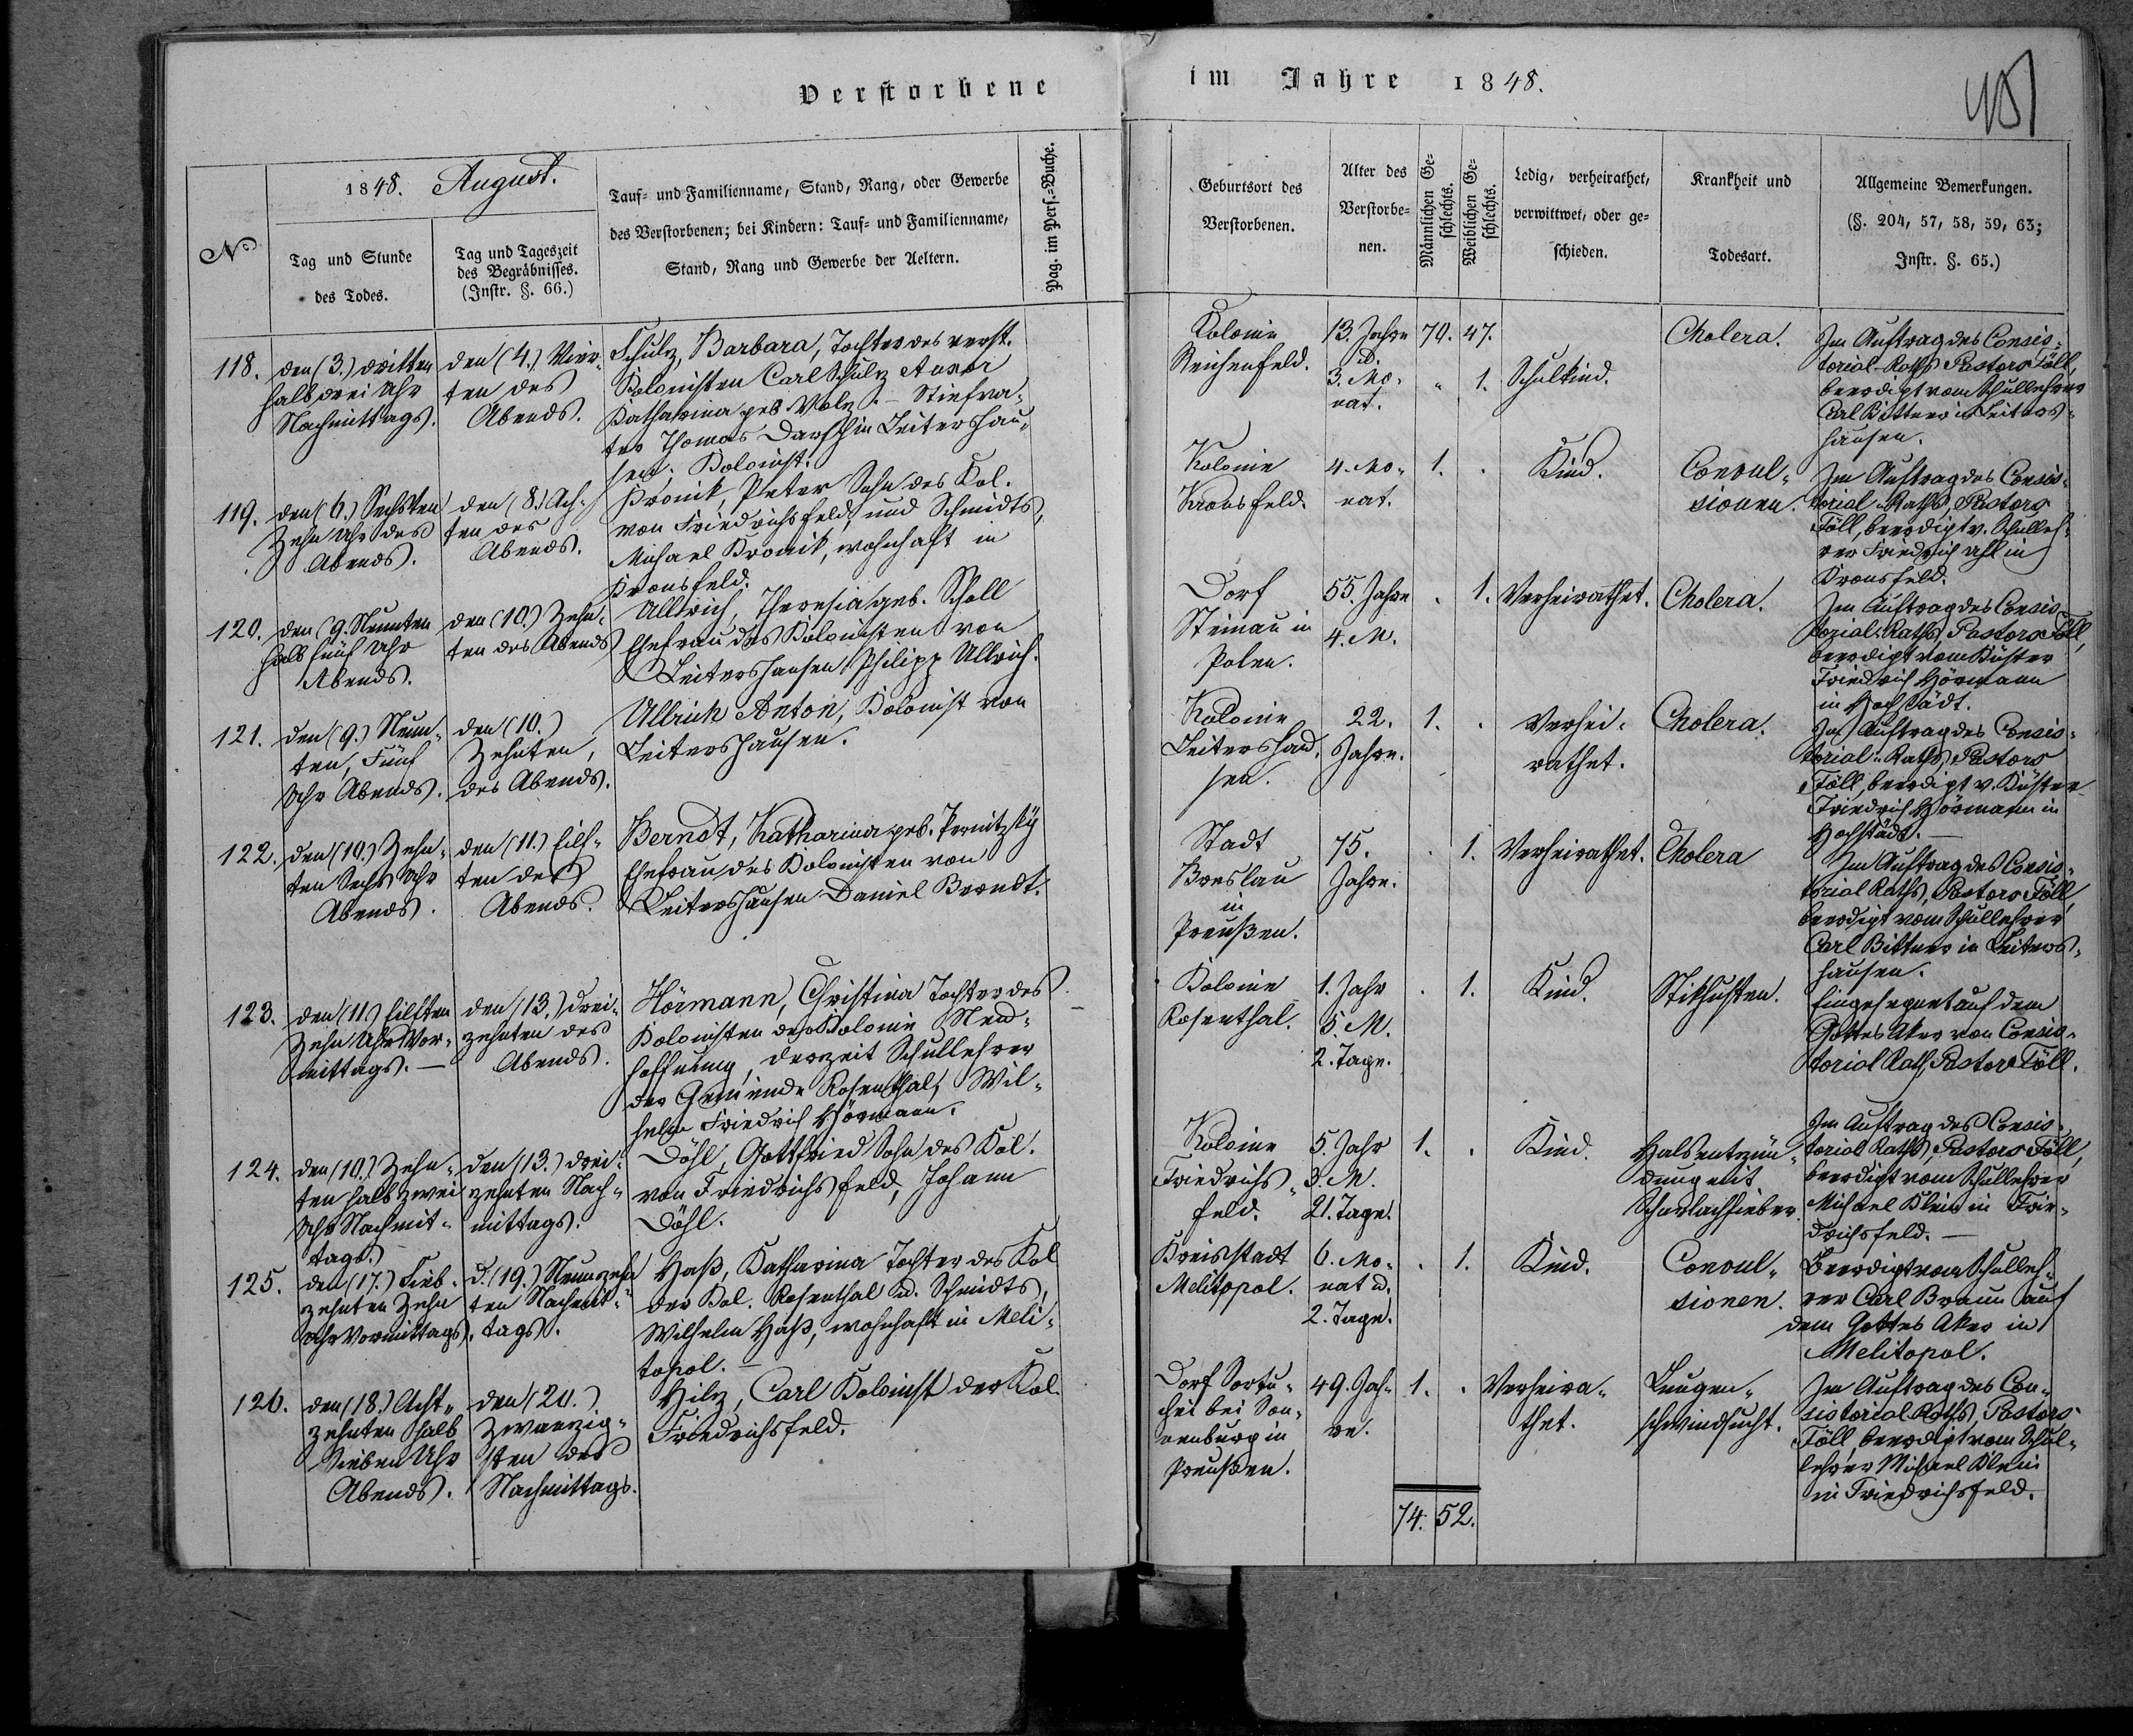 Verstorbene im Jahre 1848.
451
1848. August.
No
Tag und Stunde
des Todes.
Tag und Tageszeit
des Begräbnisses.
(Instr. §. 66.)
Tauf- und Familienname, Stand, Rang, oder Gewerbe
des Verstorbenen; bei Kindern: Tauf- und Familienname,
Stand, Rang und Gewerbe der Aeltern.
Pag. im Pers.-Buche.
Geburtsort des
Verstorbenen.
Alter des
Verstorbe-
nen.
Männlichen Ge-
schlechts.
Weiblichen Ge-
schlechts.
Ledig, verheirathet,
verwittwet, oder ge-
schieden.
Krankheit und
Todesart.
Allgemeine Bemerkungen.
(§. 204, 57, 58, 59, 63;
Instr. §. 65.)
118.
den (3.) dritten
halb drei Uhr
Nachmittags.
den (4.) Vier-
ten des
Abends.
Schulz, Barbara, Tochter des verst.
Kolonisten Carl Schulz
Katharina geb. Volz. – Stiefva-
ter Thomas Darsch in Leitershau-
sen. Kolonist.
Kolonie
Reichenfeld.
13. Jahre
u.
3. Mo-
nat.
70. 47.
" 1.
Schulkind.
Cholera.
Im Auftrag des Consis-
torial-Raths Pastors Föll,
beerdigt vom Schullehrer
Carl Bittner in Leiters-
hausen.
119.
den (6.) Sechsten
Zehn Uhr des
Abends.
den (8.) Ach-
ten des
Abends.
Kronik, Peter Sohn des Kol.
von Friedrichsfeld, und Schmidts,
Michael Kronik, wohnhaft in
Kronsfeld.
Kolonie
Kronsfeld.
4. Mo-
nat.
1. .
Kind.
Convul-
sionen.
Im Auftrag des Consis-
torial-Raths, Pastors
Föll, beerdigt v. Schulleh-
rer Friedrich Ahl in
Kronsfeld.
120.
den (9. Neunten
halb fünf Uhr
Abends.
den (10.) Zehn-
ten des Abends
Ullrich, Theresia geb. Scholl
Ehefrau des Kolonisten von
Leitershausen Philipp Ullrich.
Dorf
Steinau in
Polen.
55. Jahre
4. M.
. 1.
Verheirathet.
Cholera.
Im Auftrag des Consis-
torial-Raths, Pastors Föll,
beerdigt vom Küster
Friedrich Hörmann
in Hochstädt.
121.
den (9.) Neun-
ten, Fünf
Uhr Abends.
den (10.)
Zehnten,
des Abends.
Ullrich Anton, Kolonist von
Leitershausen.
Kolonie
Leitershau-
sen.
22.
Jahre.
1. .
Verhei-
rathet.
Cholera.
Im Auftrag des Consis-
torial-Raths, Pastors
Föll, beerdigt v. Küster
Friedrich Hörmann in
Hochstädt. –
122.
den (10.) Zehn-
ten Sechs Uhr
Abends.
den (11.) Eilf-
ten des
Abends.
Berndt, Katharina geb. Pernitzky
Ehefrau des Kolonisten von
Leitershausen Daniel Berndt.
Stadt
Breslau
in
Preußen.
75.
Jahre.
. 1.
Verheirathet.
Cholera
Im Auftrag des Consis-
torial Raths, Pastors Föll,
beerdigt vom Schullehrer
Carl Bittner in Leiters-
hausen.
123.
den (11.) Eilften
Zehn Uhr Vor-
mittags. –
den (13.) drei-
zehnten des
Abends.
Hörmann, Christina Tochter des
Kolonisten der Kolonie Neu-
hoffnung, derzeit Schullehrer
der Gemeinde Rosenthal, Wil-
helm Friedrich Hörmann.
Kolonie
Rosenthal.
1. Jahr
5. M.
2. Tage.
. 1.
Kind.
Stikhusten.
Eingesegnet auf dem
Gottes Aker von Consis-
torial Rath, Pastor Föll.
124.
den (10.) Zehn-
ten halb zwei
Uhr Nachmit-
tags.
den (13.) drei-
zehnten Nach-
mittags.
Döhl, Gottfried Sohn des Kol.
von Friedrichsfeld, Johann
Döhl.
Kolonie
Friedrichs-
feld.
5. Jahr
3. M.
21. Tage.
1. .
Kind.
Halsentzün-
dung mit
Scharlachfieber.
Im Auftrag des Consis-
torial Raths, Pastors Föll,
beerdigt vom Schullehrer
Michael Klein in Frie-
drichsfeld. –
125.
den (17.) Sieb-
zehnten Zehn
Uhr Vormittags.
d. (19.) Neunzehn
ten Nachmit-
tags.
Haß, Katharina Tochter des Kol
der Kol. Rosenthal u. Schmidts,
Wilhelm Haß, wohnhaft in Meli-
topol. –
Kreisstadt
Melitopol.
6. Mo-
nat u.
2. Tage.
. 1.
Kind.
Convul-
sionen.
Beerdigt vom Schulleh-
rer Carl Braun auf
dem Gottes Aker in
Melitopol.
126.
den (18.) Acht-
zehnten halb
Sieben Uhr
Abends.
den (20.)
Zwanzig-
sten des
Nachmittags.
Hilz, Carl Kolonist der Kol.
Friedrichsfeld.
Dorf
bei Son-
nenburg in
Preußen.
49. Jah-
re.
1. .
Verheira-
thet.
Lungen-
schwindsucht.
Im Auftrag des Con-
sistorial-Raths, Pastors
Föll, beerdigt vom Schul-
lehrer Michael Klein
in Friedrichsfeld.
74. 52.